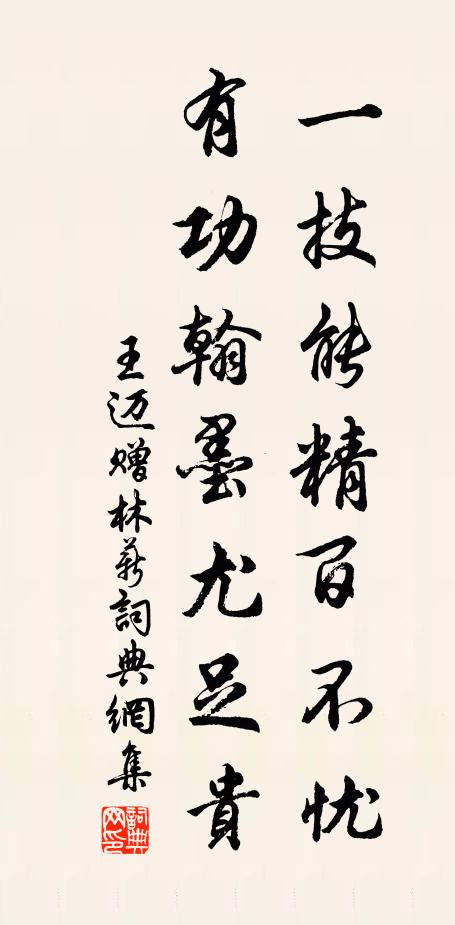 一技能精百不忧
有功翰墨尤足貴
王迈赠林薪詞典網集
詞典网印